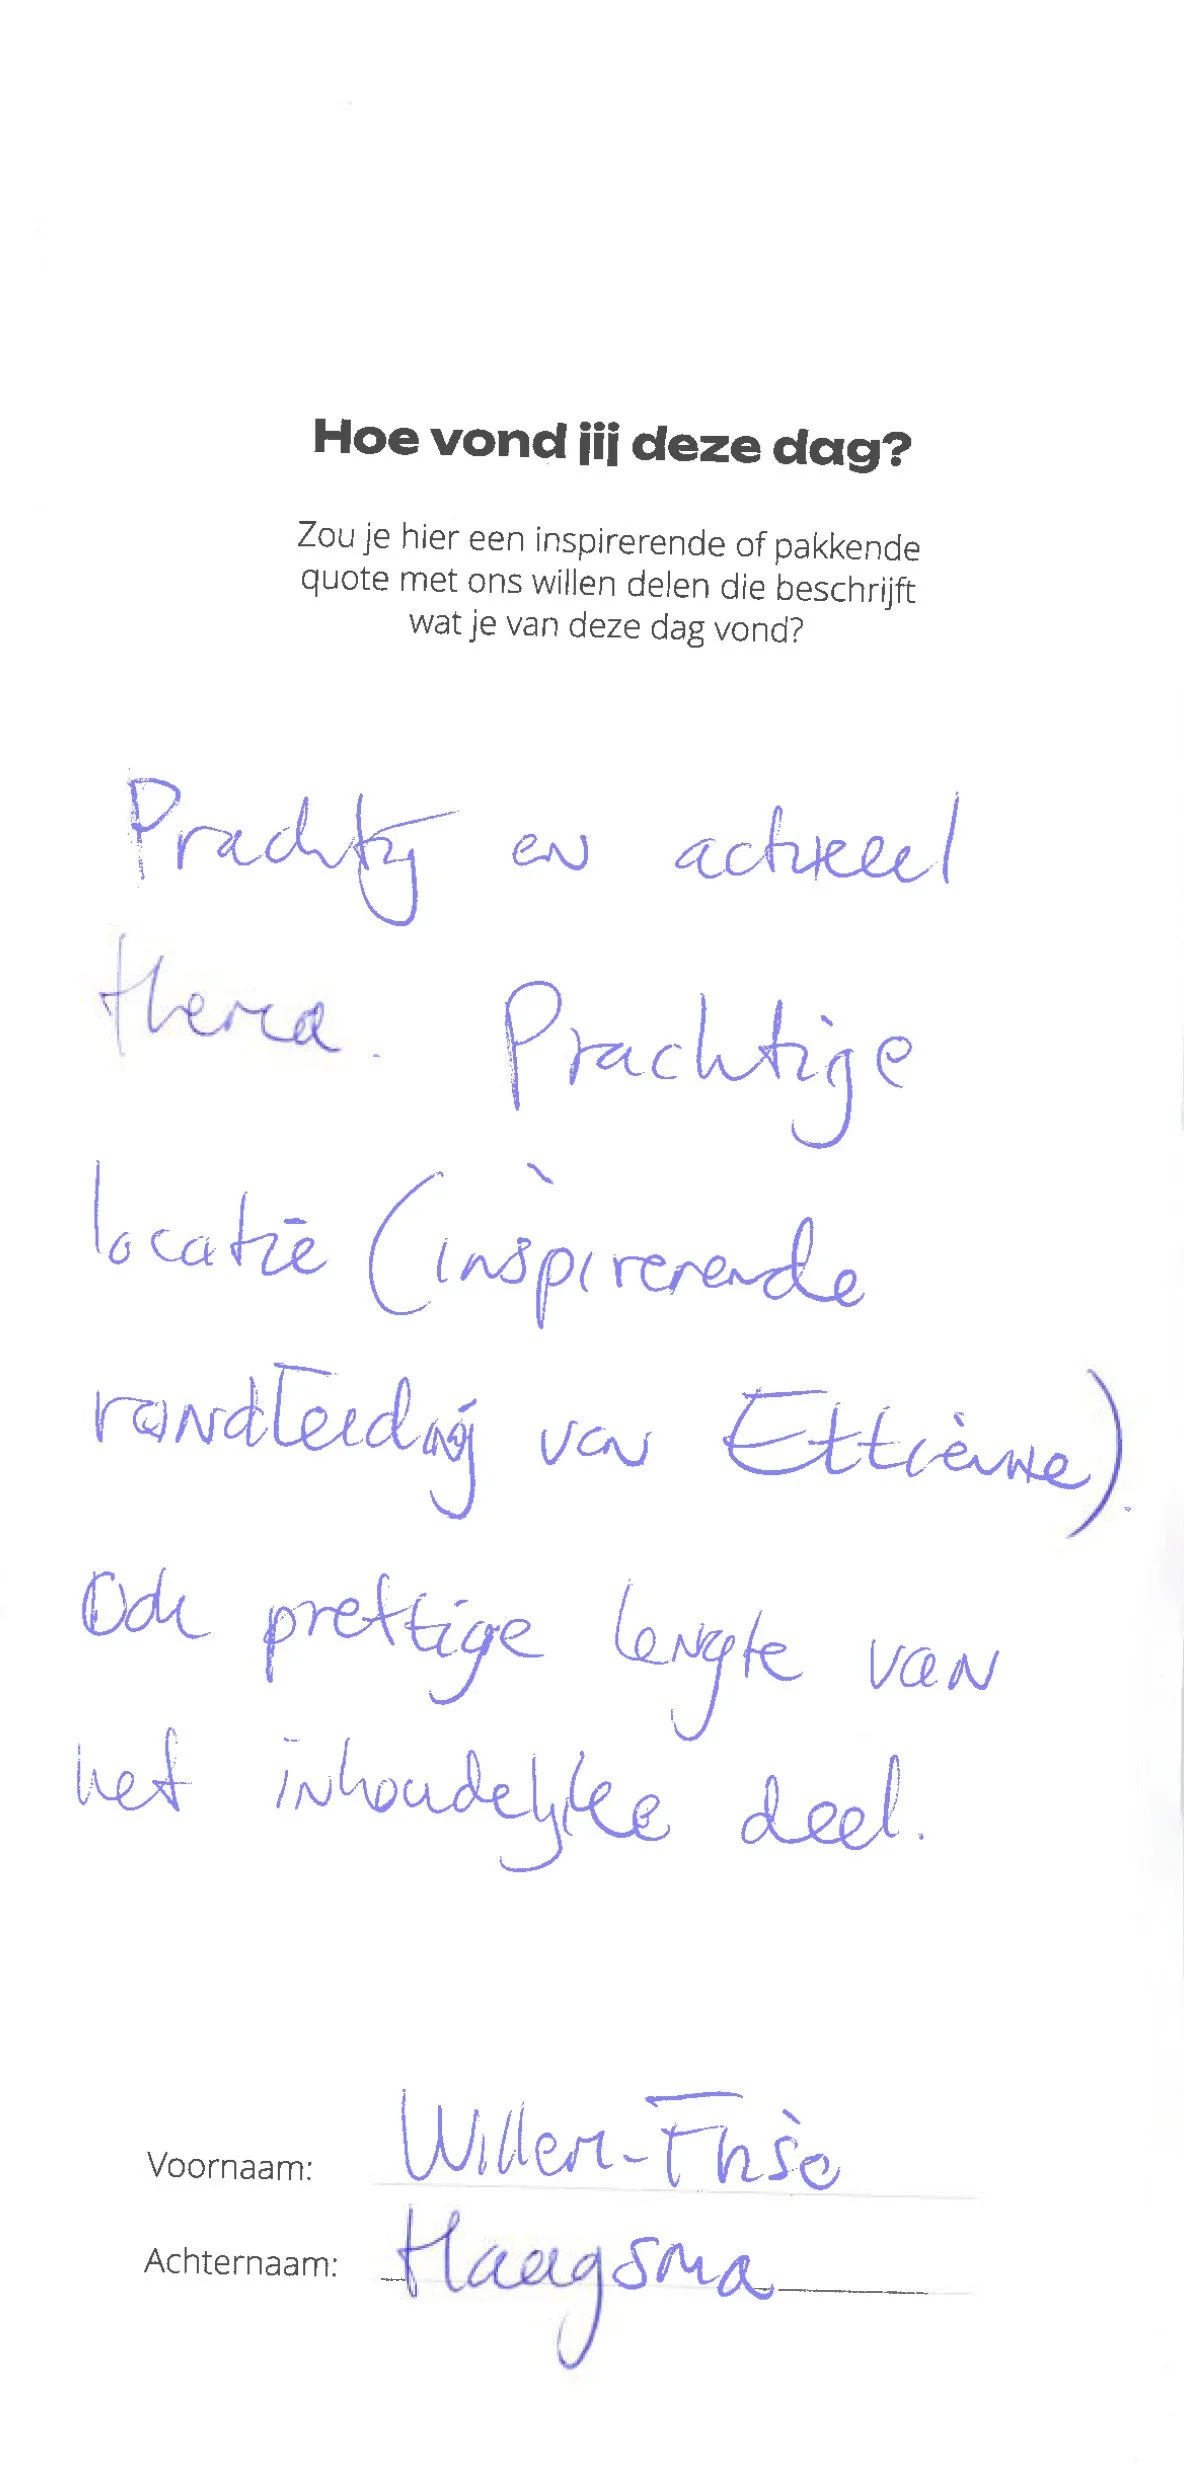 Hoe vond jij deze dag?
Zou je hier een inspirerende of pakkende
quote met ons willen delen die beschrijft
wat je van deze dag vond?
Prachtig en actueel
thema. Prachtige
locatie (inspirerende
rondleiding van Ettiènne).
Ook prettige lengte van
het inhoudelijke deel.
Voornaam: Willem-
Achternaam: Haagsma